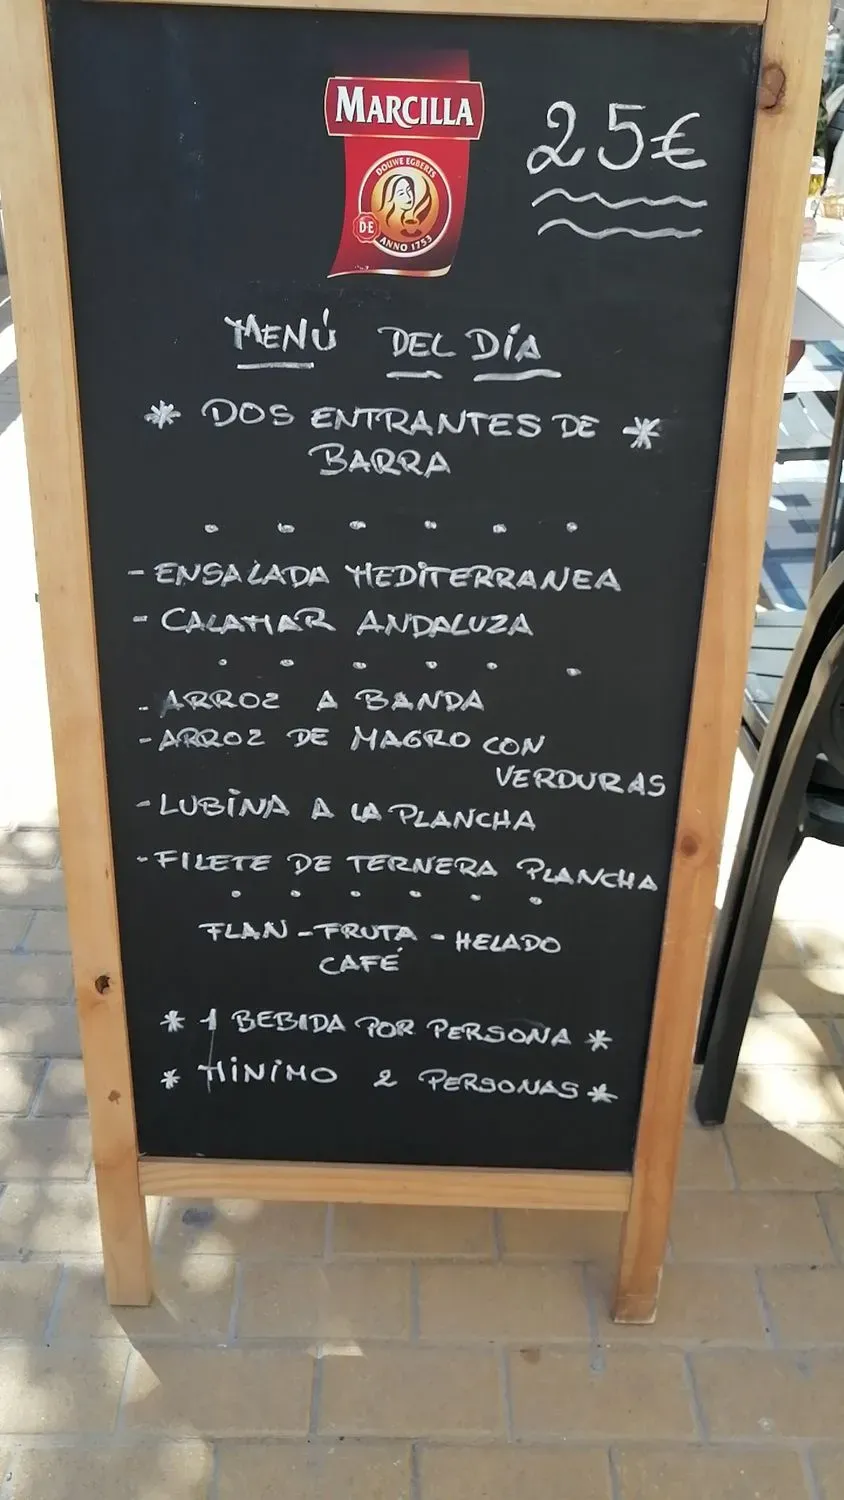 MARCILLA
DOUWE EGBERTS
D·E
ANNO 1753
25€
MENÚ DEL DÍA
* DOS ENTRANTES DE *
BARRA
- ENSALADA MEDITERRANEA
- CALAMAR ANDALUZA
- ARROZ A BANDA
- ARROZ DE MAGRO CON
VERDURAS
- LUBINA A LA PLANCHA
- FILETE DE TERNERA PLANCHA
FLAN - FRUTA - HELADO
CAFÉ
* 1 BEBIDA POR PERSONA *
* MINIMO 2 PERSONAS *